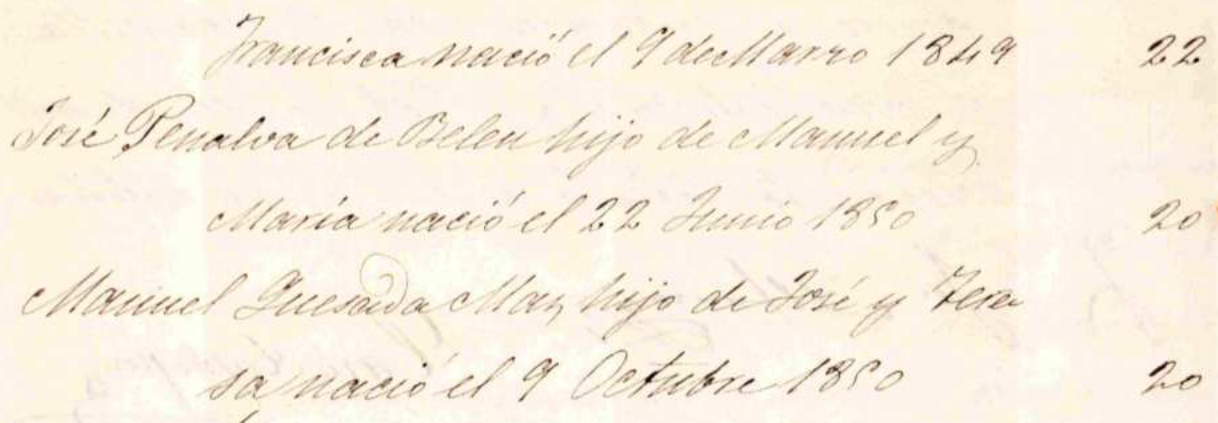 Francisca nació el 9 de Marzo 1849 22
José Penalva de Belen hijo de Manuel y
Maria nació el 22 Junio 1850 20
Manuel Quesada Mas, hijo de José y Tere
sa nació el 9 Octubre 1850 20